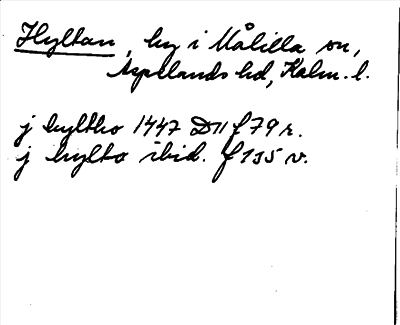 Hyltan, by i Målilla sn,
Aspelands hd, Kalm. l.
j hyltho 1447 D11 f 79 r.
j hylto ibid. f 135 v.